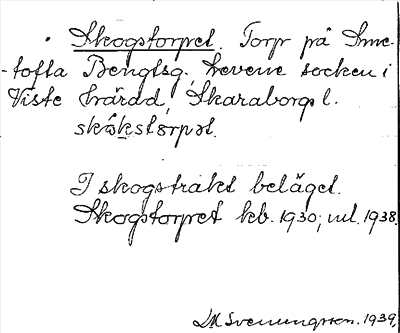 Skogstorpet. Torp på Simme-
tofta Bengtsg. Levene socken i
Viste härad, Skaraborgs l.
skɷ̀kstɷrpət.
I skogstrakt beläget.
Skogstorpet hb. 1930; vul. 1938.
DM Svenungsson. 1939.